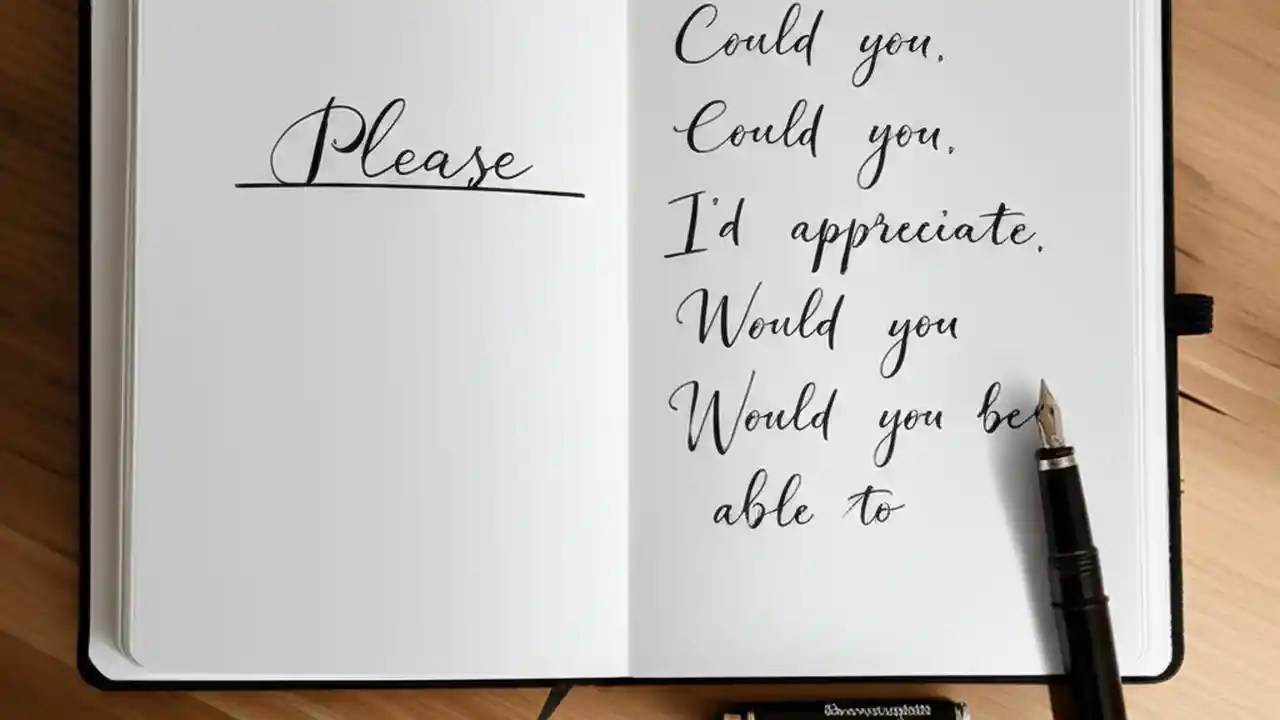 Please
Could you.
Could you.
I'd appreciate.
Would you
Would you be
able to